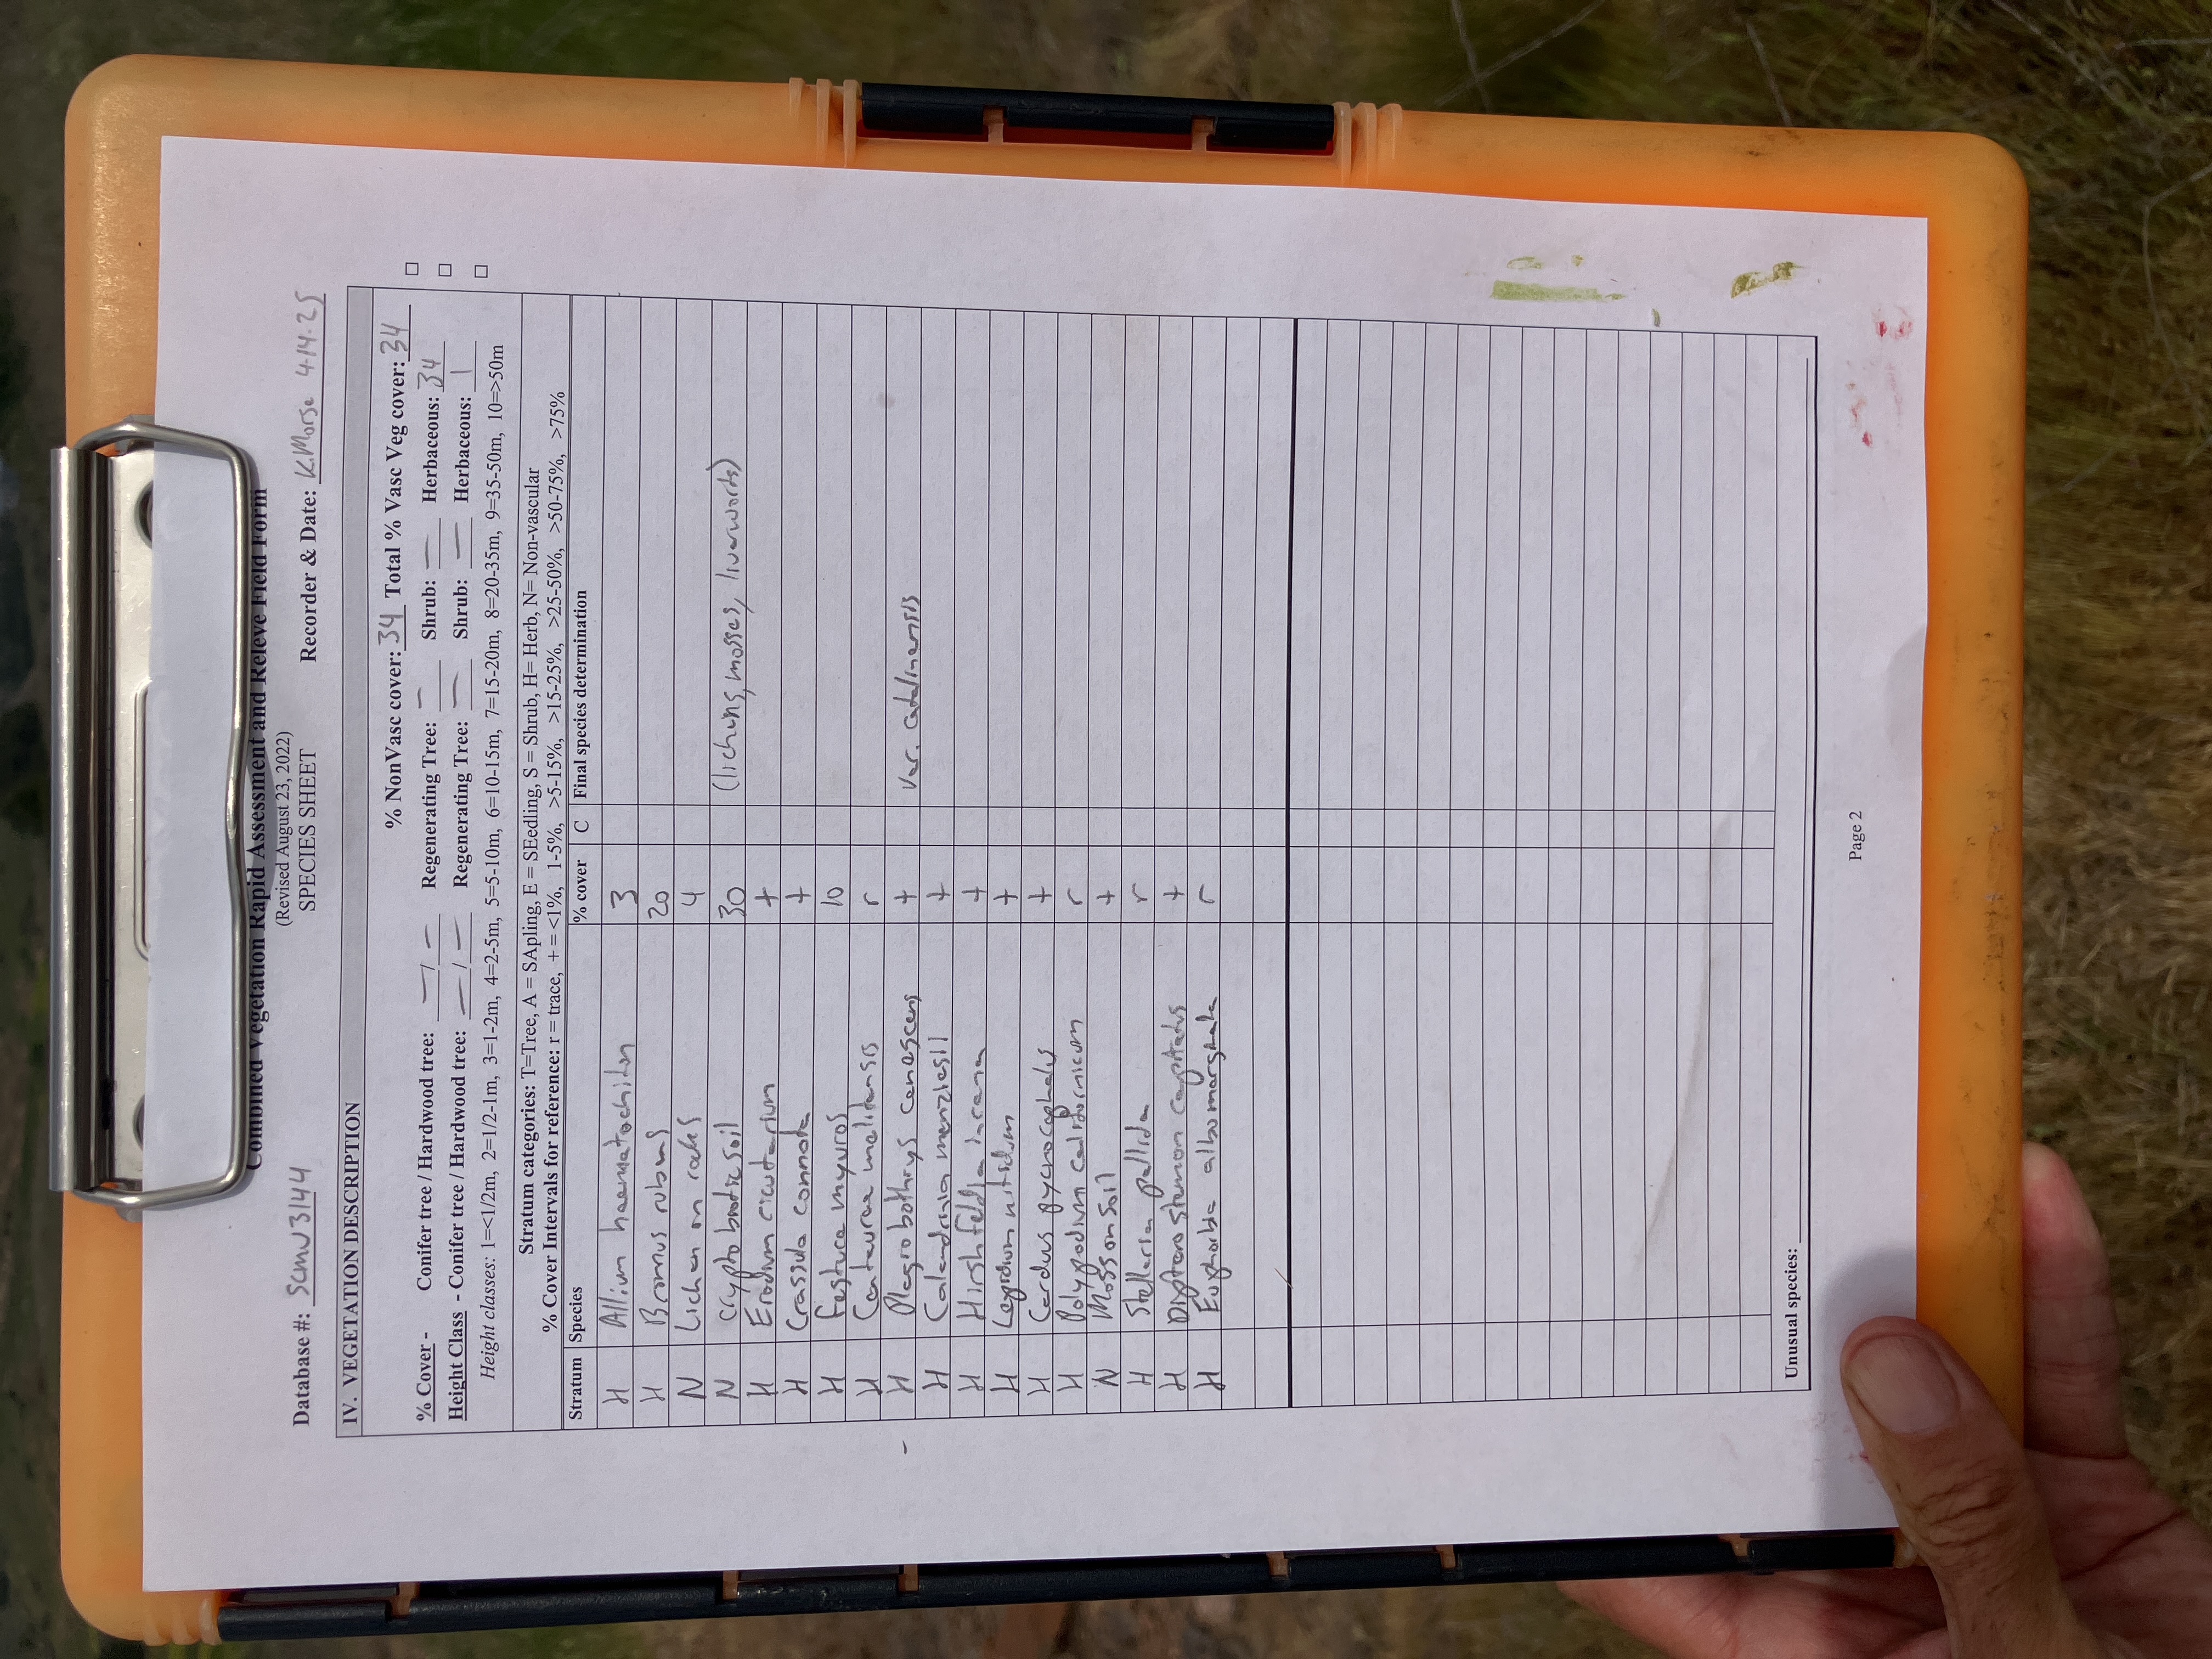 Combined Vegetation Rapid Assessment and Relevé Field Form
(Revised August 23, 2022)
SPECIES SHEET
Database #: Scmw3144 Recorder & Date: K.Morse 4-14-25
IV. VEGETATION DESCRIPTION
% NonVasc cover: 34 Total % Vasc Veg cover: 34
% Cover - Conifer tree / Hardwood tree: — / — Regenerating Tree: — Shrub: — Herbaceous: 34
Height Class - Conifer tree / Hardwood tree: — / — Regenerating Tree: — Shrub: — Herbaceous: 1
Height classes: 1=<1/2m, 2=1/2-1m, 3=1-2m, 4=2-5m, 5=5-10m, 6=10-15m, 7=15-20m, 8=20-35m, 9=35-50m, 10=>50m
Stratum categories: T=Tree, A = SApling, E = SEedling, S = Shrub, H= Herb, N= Non-vascular
% Cover Intervals for reference: r = trace, + = <1%, 1-5%, >5-15%, >15-25%, >25-50%, >50-75%, >75%
Stratum Species % cover C Final species determination
H Allium haematochiton 3
H Bromus rubens 20
N Lichen on rocks 4
N Cryptobiotic soil 30 (lichens, mosses, liverworts)
H Erodium cicutarium +
H Crassula connata +
H Festuca myuros 10
H Centaurea melitensis r
H Plagiobothrys canescens + var. catalinensis
H Calandrinia menziesii +
H Hirshfeldia incana +
H Lepidium nitidum +
H Cardus pycnocephalus +
H Polypodium californicum r
N Moss on soil +
H Stellaria pallida r
H Dipterostemon capitatus +
H Euphorbia albomarginata r
Unusual species:
Page 2